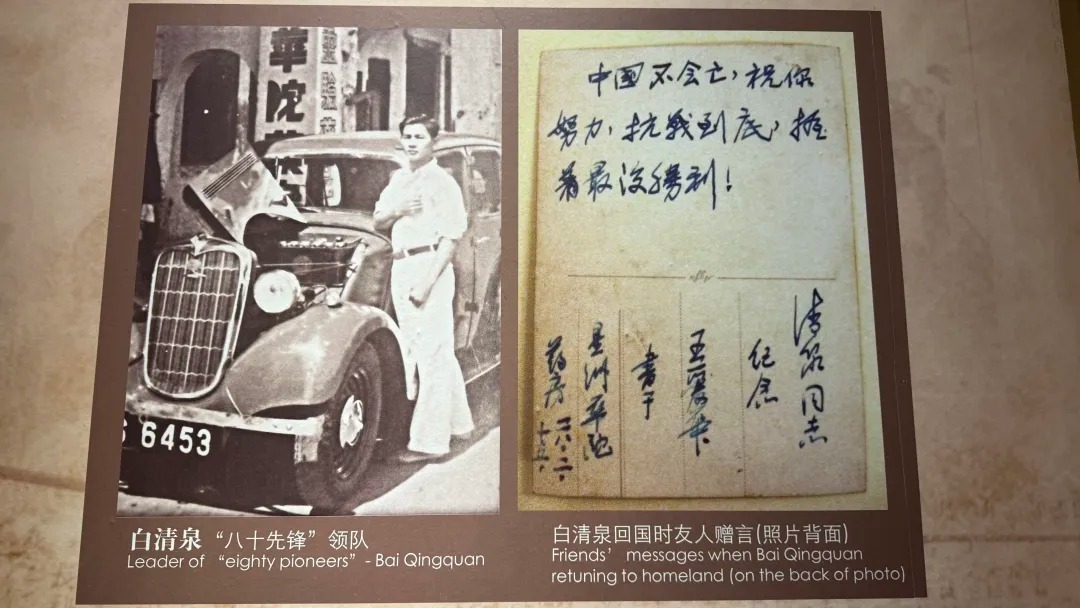 華陀
6453
中國不会亡,祝你
努力,抗戰到底,握
着最後勝利!
清泉同志
纪念
書于
星洲華陀
药房
白清泉“八十先锋”领队
Leader of “eighty pioneers” - Bai Qingquan
白清泉回国时友人赠言(照片背面)
Friends’ messages when Bai Qingquan
retuning to homeland (on the back of photo)